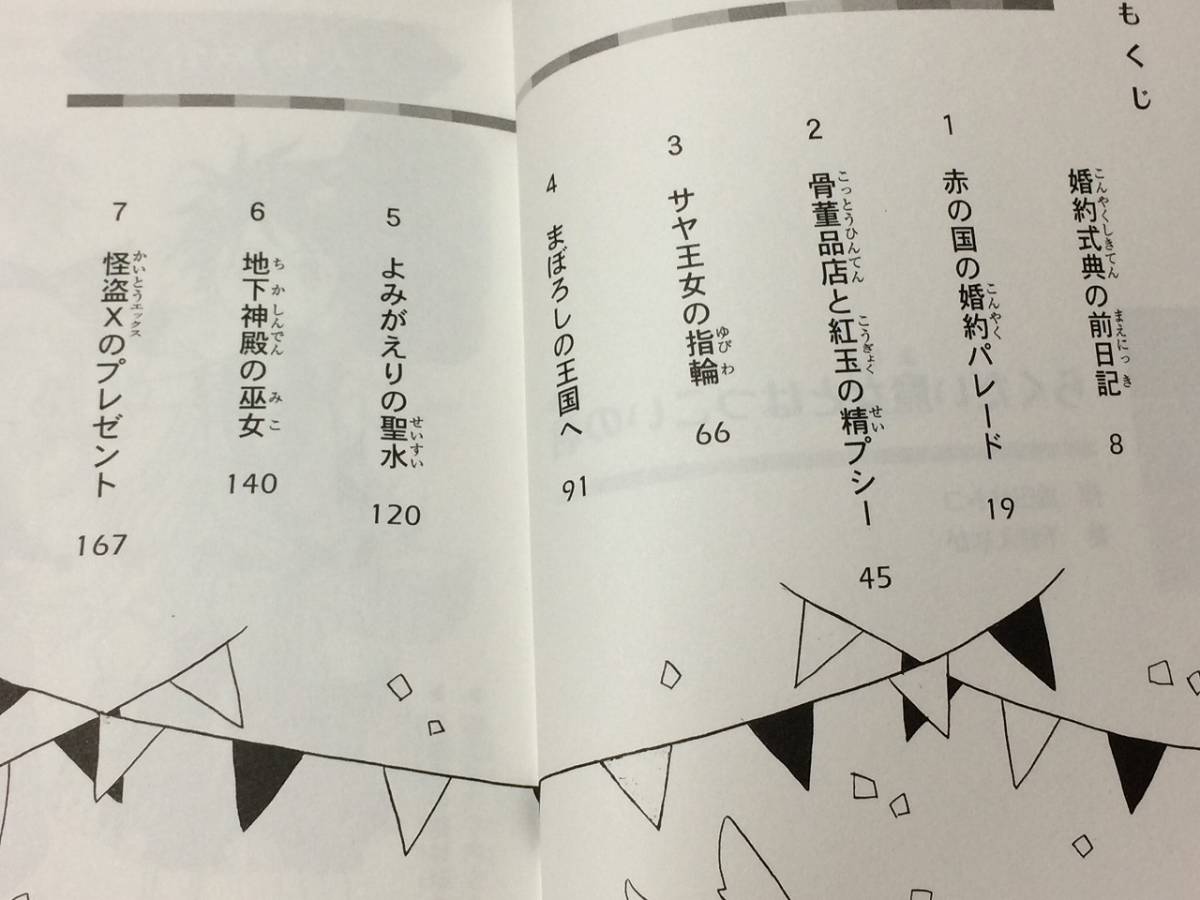 もくじ
婚約式典の前日記 8
1 赤の国の婚約パレード 19
2 骨董品店と紅玉の精プシー 45
3 サヤ王女の指輪 66
4 まぼろしの王国へ 91
5 よみがえりの聖水 120
6 地下神殿の巫女 140
7 怪盗Xのプレゼント 167